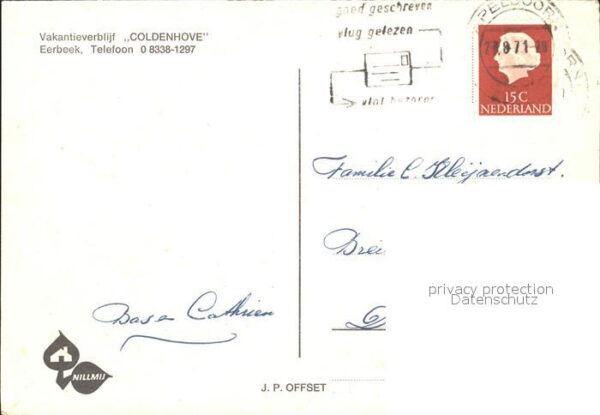 Vakantieverblijf „COLDENHOVE"
Eerbeek, Telefoon 0 8338-1297
goed geschreven
vlug gelezen
vlot bezorgd
15 C
NEDERLAND
Familie C.
privacy protection
Datenschutz
Bas en Cathrien
NILLMIJ
J. P. OFFSET